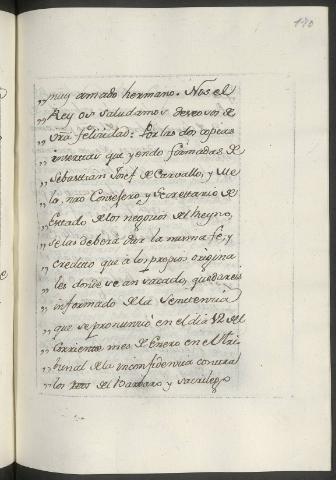 170
„ muy amado hermano. Nos el
„ Rey os saludamos deseosos de
„ vrâ felicidad: Por las dos copias
„ insertas que yendo formadas de
„ Sebastian Josef de Carvallo, y Me
„ lo, nrô Consejero y Secrettario de
„ Estado de los negocios del Reyno,
„ se las deberâ dar la misma fe, y
„ credito que â los propios origina
„ les donde se an sacado, quedareis
„ informado de la Sentencia
„ que se pronunciò en el dia 12 del
„ Corriente mes de Enero en el Tri
„ bunal de la inconfidencia contra
„ los reos del Barbaro y sacrilego